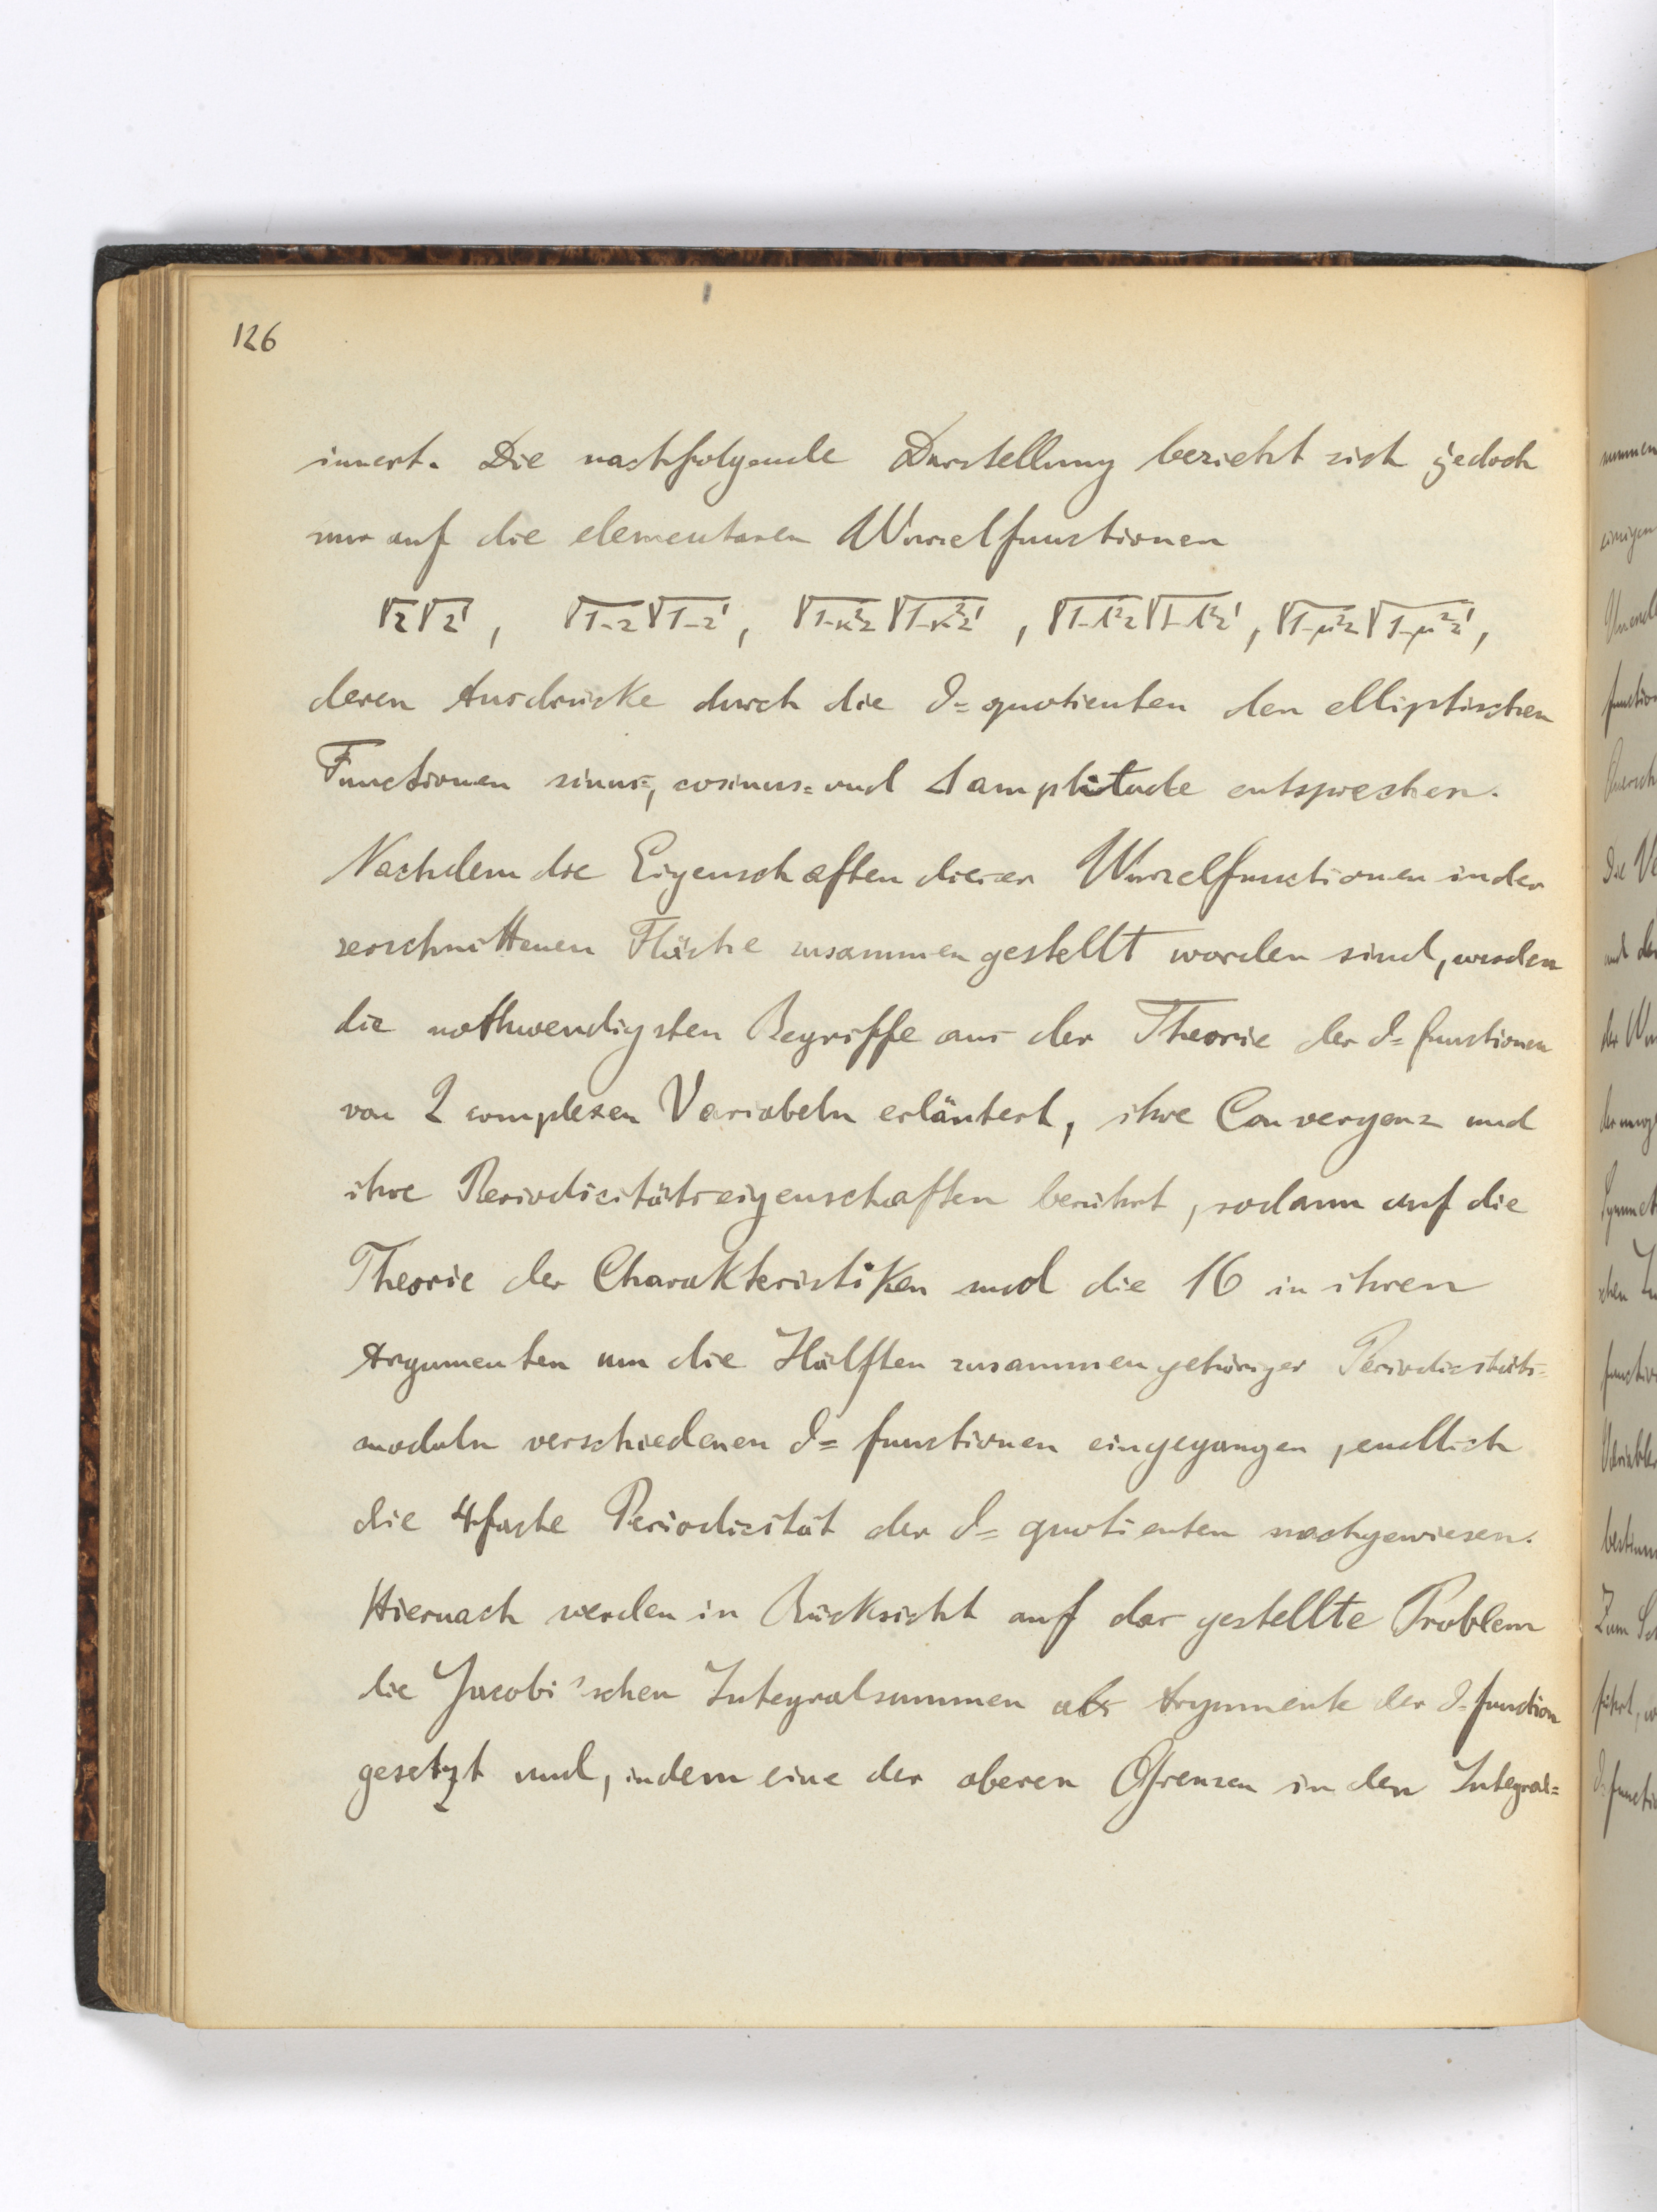 126
innert. Die nachfolgende Darstellung bezieht sich jedoch
nur auf die elementaren Wurzelfunctionen
√z√z', √1-z√1-z', √1-κ²z√1-κ²z', √1-λ²z√1-λ²z', √1-μ²z√1-μ²z',
deren Ausdrücke durch die ϑ=quotienten den elliptischen
Functionen sinus=, cosinus= und Δ amplitude entsprechen.
Nachdem die Eigenschaften dieser Wurzelfunctionen in der
zerschnittenen Fläche zusammengestellt worden sind, werden
die nothwendigsten Begriffe aus der Theorie der ϑ=functionen
von 2 complexen Variabeln erläutert, ihre Convergenz und
ihre Periodicitätseigenschaften berührt, sodann auf die
Theorie der Charakteristiken und die 16 in ihren
Argumenten um die Hälften zusammengehöriger Periodicitäts=
moduln verschiedenen ϑ=functionen eingegangen, endlich
die 4fache Periodicität der ϑ=quotienten nachgewiesen.
Hiernach werden in Rücksicht auf das gestellte Problem
die Jacobi'schen Integralsummen als Argumente der ϑ=function
gesetzt und, indem eine der oberen Grenzen in den Integral=